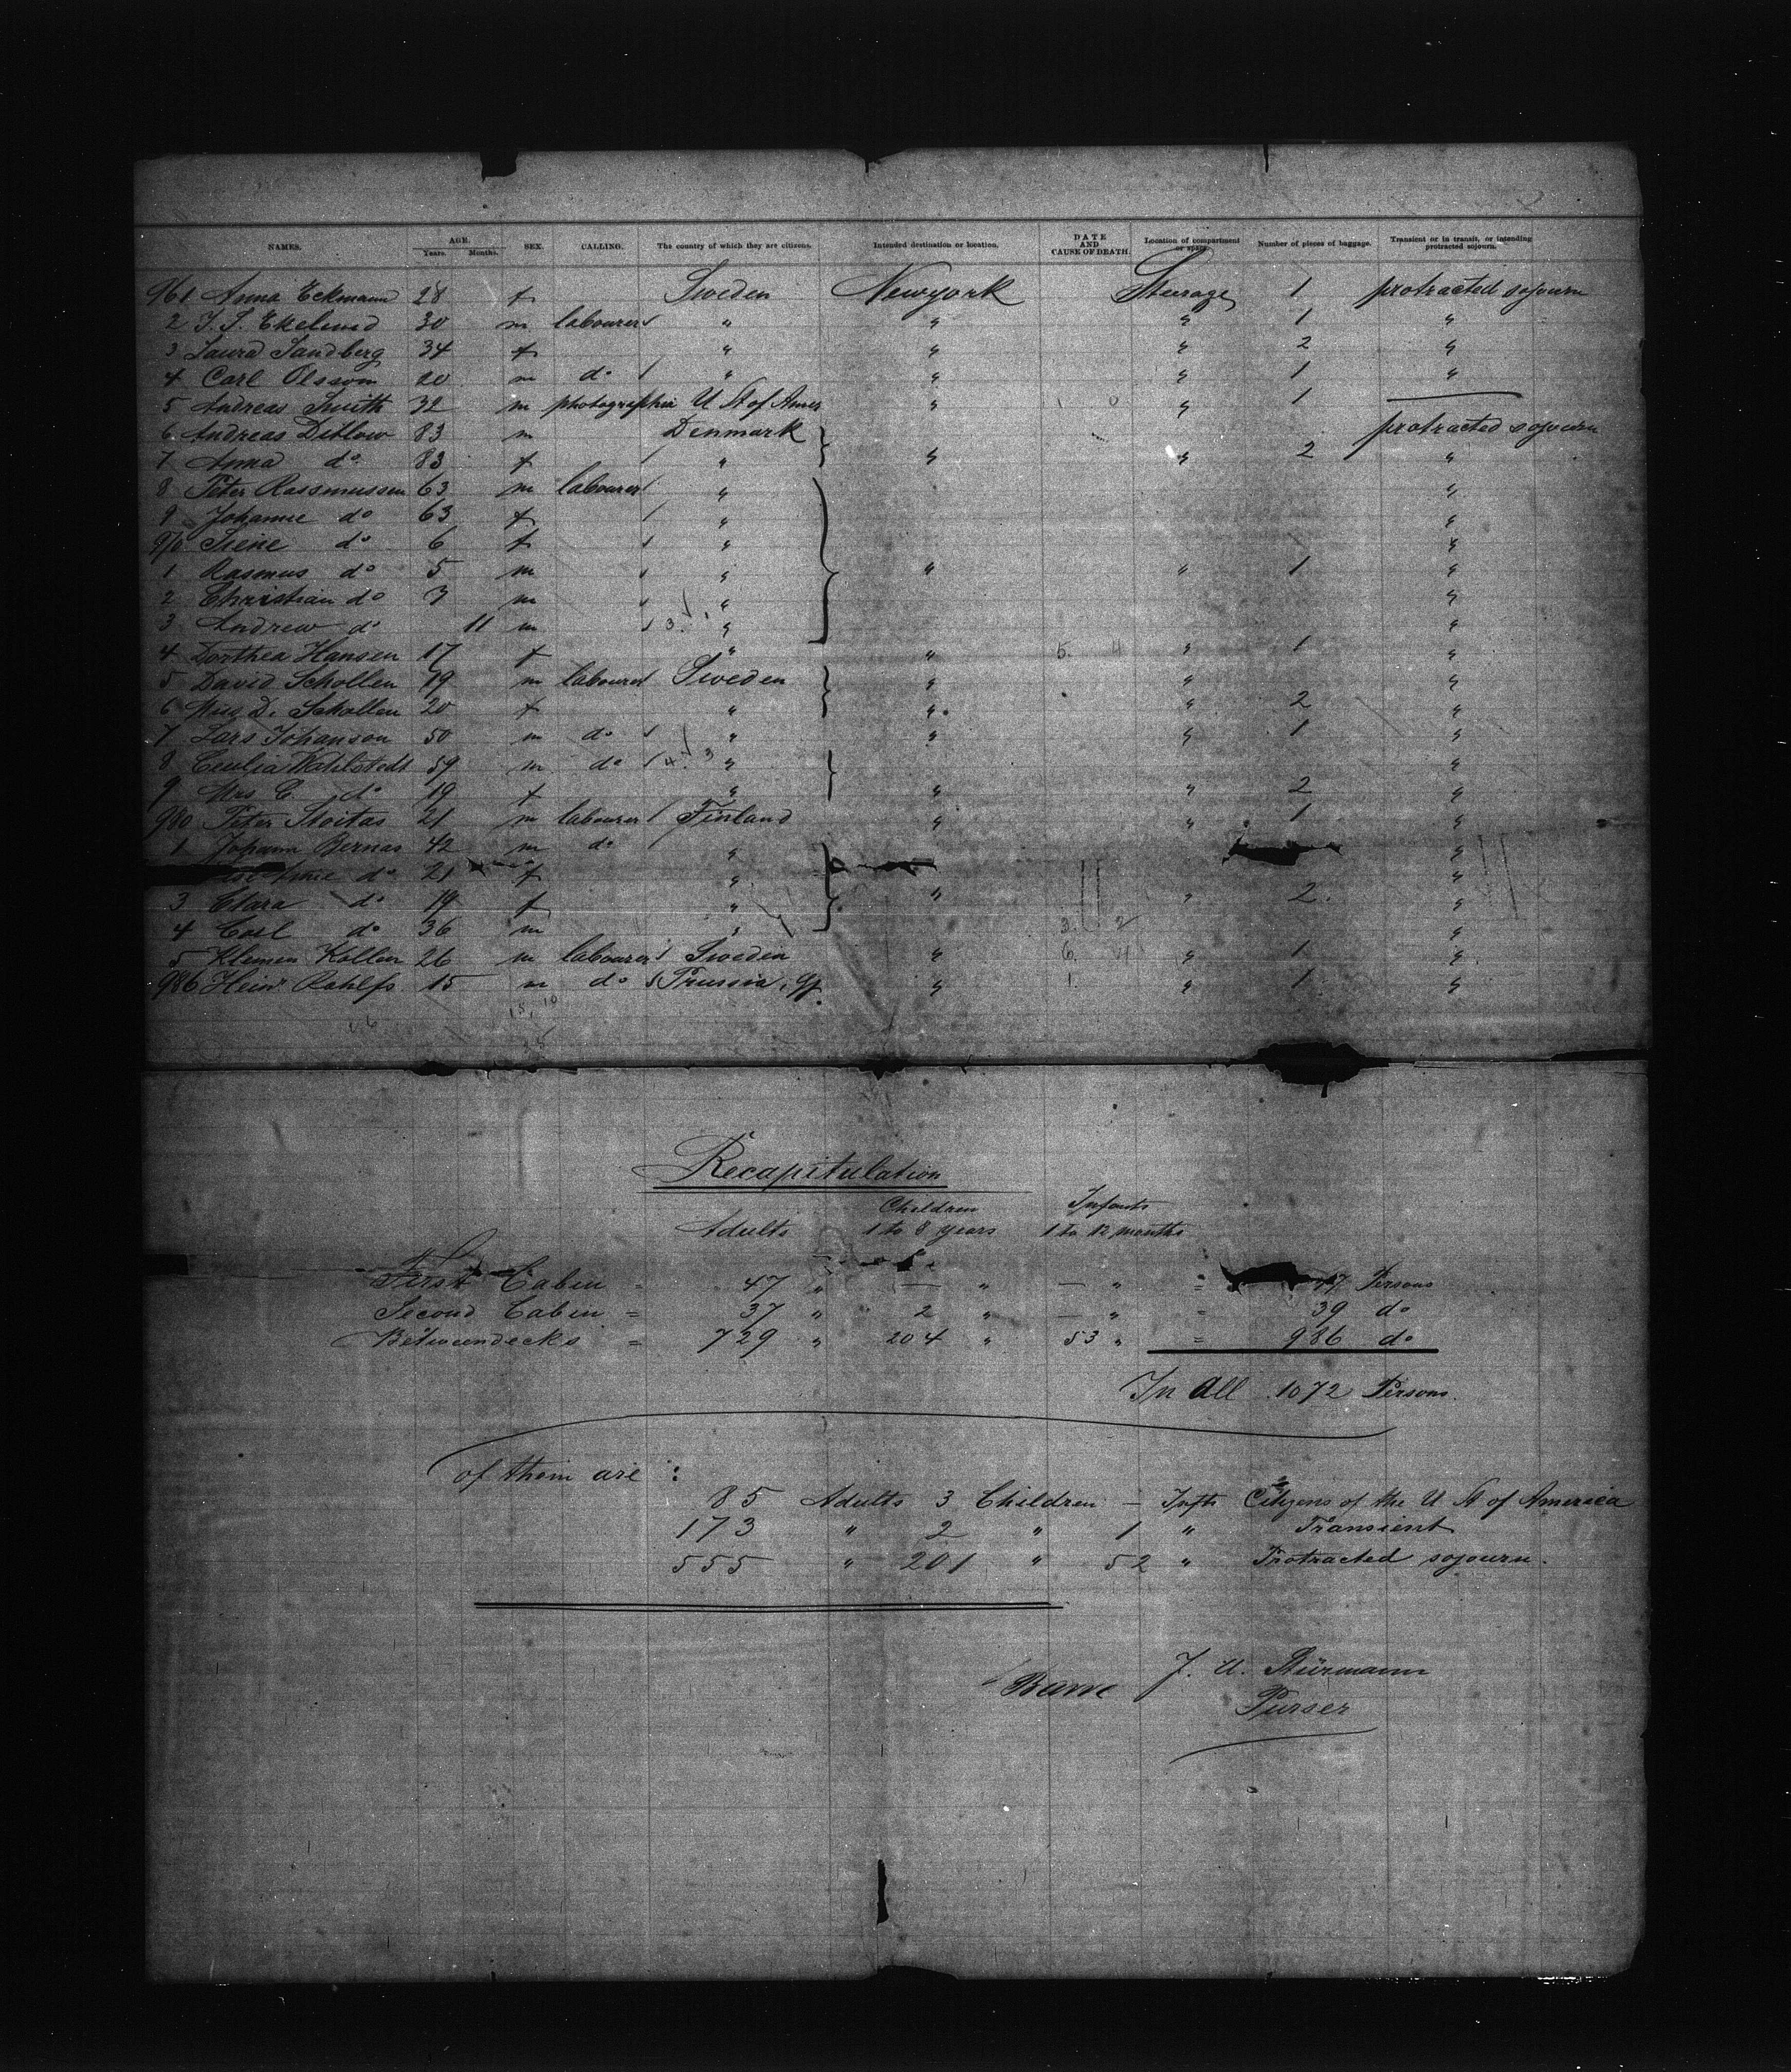 NAMES. AGE. Years. Months. SEX. CALLING. The country of which they are citizens. Intended destination or location. DATE AND CAUSE OF DEATH. Location of compartment or space. Number of pieces of baggage. Transient or in transit, or intending protracted sojourn.
961 Anna Eckmann 28 f Sweden Newyork Steerage 1 protracted sojourn
2 J. S. Ekelund 30 m labourer " " " 1 "
3 Laura Sandberg 34 f " " " 2 "
4 Carl Olsson 20 m do " " " 1 "
5 Andreas Smith 32 m photographer U St of Amer " " 1 —
6 Andreas Ditlow 83 m Denmark protracted sojourn
7 Anna do 83 f " " " 2 "
8 Peter Rassmussen 63 m labourer " "
9 Johanne do 63 f " "
970 Irene do 6 f " "
1 Rasmus do 5 m " " " 1 "
2 Christian do 3 m " "
3 Andrew do 11 m " "
4 Dorthea Hansen 17 f " " " 1 "
5 David Schollen 19 m labourer Sweden " " "
6 Mrs D. Schollen 20 f " " " 2 "
7 Lars Johanson 50 m do " " " 1 "
8 Wahlstedt 59 m do " "
9 Mrs C. do 19 f " " " 2 "
980 Peter Stoitas 21 m labourer Finland " " 1 "
1 Johann Bernas 42 m do " "
do 21 f " "
3 Clara do 19 f " " " 2 "
4 Carl do 36 m " "
5 Klemen Kollen 26 m labourer Sweden " " 1 "
986 Heinr Rahlfs 15 m do Prussia, " " 1 "
Recapitulation
Children Infants
Adults 1 to 8 years 1 to 12 months
First Cabin = 47 " — " — " = 47 Persons
Second Cabin = 37 " 2 " — " = 39 do
Betweendecks = 729 " 204 " 53 " = 986 do
In All 1072 Persons.
of them are :
85 Adults 3 Children — Infts Citizens of the U St of America
173 " 2 " 1 " Transient
555 " 201 " 52 " Protracted sojourn.
J. U. Stürmann
Purser